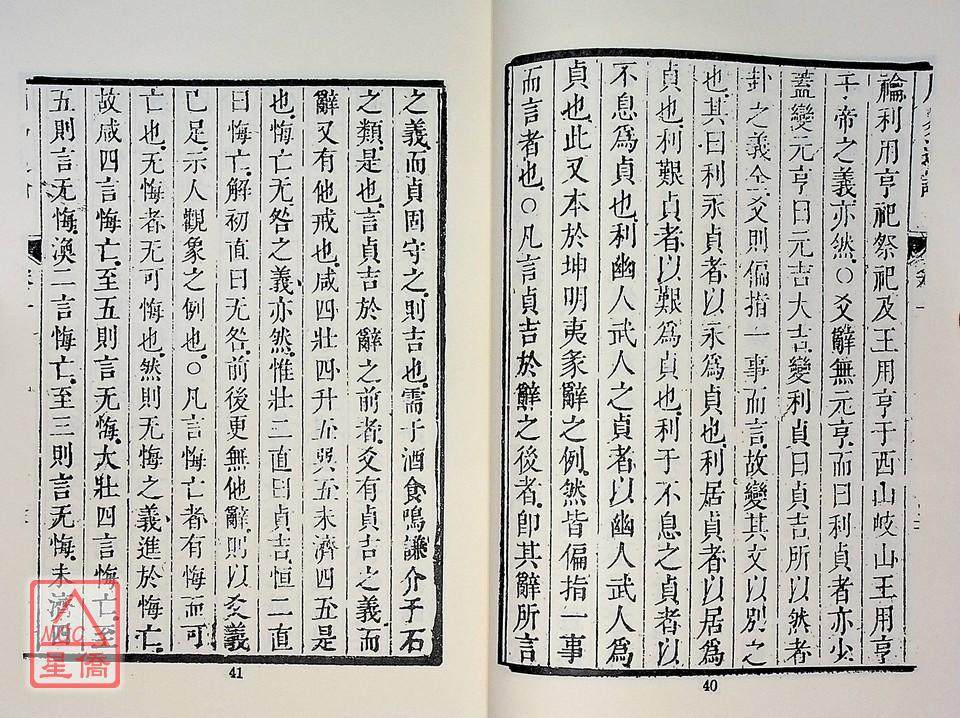 禴利用亨祀祭祀及王用亨于西山岐山王用亨
于帝之義亦然○爻辭無元亨而曰利貞者亦少
蓋變元亨曰元吉大吉變利貞曰貞吉所以然者
卦之義全爻則偏指一事而言故變其文以別之
也其曰利永貞者以永為貞也利居貞者以居為
貞也利艱貞者以艱為貞也利于不息之貞者以
不息為貞也利幽人武人之貞者以幽人武人為
貞也此又本於坤明夷彖辭之例然皆偏指一事
而言者也○凡言貞吉於辭之後者卽其辭所言
40
之義而貞固守之則吉也需于酒食鳴謙介于石
之類是也言貞吉於辭之前者爻有貞吉之義而
辭又有他戒也咸四壯四升五巽五未濟四五是
也悔亡无咎之義亦然惟壯二直曰貞吉恒二直
曰悔亡解初直曰无咎前後更無他辭則以爻義
已足示人觀象之例也○凡言悔亡者有悔而可
亡也无悔者无可悔也然則无悔之義進於悔亡
故咸四言悔亡至五則言无悔大壯四言悔亡至
五則言无悔渙二言悔亡至三則言无悔未濟四
41
MGC
星僑